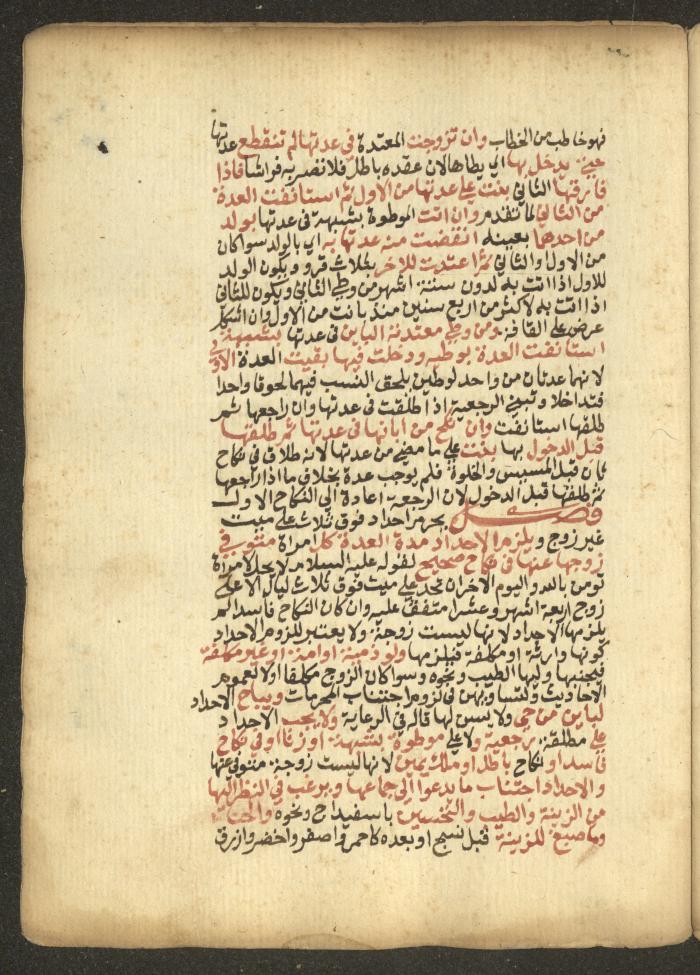 فهو خاطب من الخطاب وان تزوجت المعتدة في عدتها لم تنقطع عدتها
حتى يدخل بها اي يطاها لان عقده باطل فلا تصير به فراشا فاذا
فارقها الثاني بنت على عدتها من الاول ثم استانفت العدة
من الثاني لما تقدم وان اتت الموطوة بشبهة في عدتها بولد
من احدهما بعينه انقضت منه عدتها به اي بالولد سوا كان
من الاول او الثاني ثم اعتدت للاخر بثلاث قرو ويكون الولد
للاول اذا اتت به لدون ستة اشهر من وطي الثاني ويكون للثاني
اذا اتت به لاكثر من اربع سنين منذ بانت من الاول وان اشكل
عرض على القافة ومن وطي معتدته الباين في عدتها بشبهة
استانفت العدة بوطيه ودخلت فيها بقيت العدة الاولى
لانهما عدتان من واحد لوطين يلحق النسب فيهما لحوقا واحدا
فتداخلا وتبني الرجعية اذا طلقت في عدتها وان راجعها ثم
طلقها استانفت وان نكح من ابانها في عدتها ثم طلقها
قبل الدخول بها بنت على ما مضى من عدتها لانه طلاق في نكاح
ثان قبل المسيس والخلوة فلم يوجب عدة بخلاف ما اذا راجعها
ثم طلقها قبل الدخول لان الرجعة اعادة الى النكاح الاول
فصل يحرم احداد فوق ثلاث على ميت
غير زوج ويلزم الاحداد مدة العدة كل امراة متوفى
زوجها عنها في نكاح صحيح لقوله عليه السلام لا يحل لامراة
تومن بالله واليوم الاخر ان تحد على ميت فوق ثلاث ليال الا على
زوج اربعة اشهر وعشرا متفق عليه وان كان النكاح فاسدا لم
يلزمها الاحداد لانها ليست زوجة ولا يعتبر للزوم الاحداد
كونها وارثة او مكلفة فيلزمها ولو ذمية او امة او غير مكلفة
فيجنبها وليها الطيب ونحوه وسوا كان الزوج مكلفا او لا لعموم
الاحاديث ولتساويهن في لزوم اجتناب المحرمات ويباح الاحداد
لباين من حي ولا يسن لها قاله في الرعاية ولا يجب الاحداد
على مطلقة رجعية ولا على موطوة بشبهة او زنا او في نكاح
فاسد او نكاح باطل او ملك يمين لانها ليست زوجة متوفى عنها
والاحداد اجتناب ما يدعوا الى جماعها ويرغب في النظر اليها
من الزينة والطيب والتحسين باسفيداج ونحوه والحنا
وما صبغ للزينة قبل نسج او بعده كاحمر واصفر واخضر وازرق